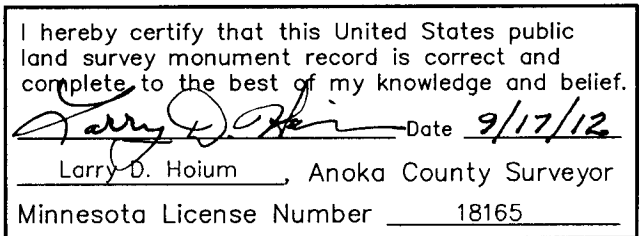 I hereby certify that this United States public
land survey monument record is correct and
complete to the best of my knowledge and belief.
Larry D. Hoium Date 9/17/12
Larry D. Hoium, Anoka County Surveyor
Minnesota License Number 18165